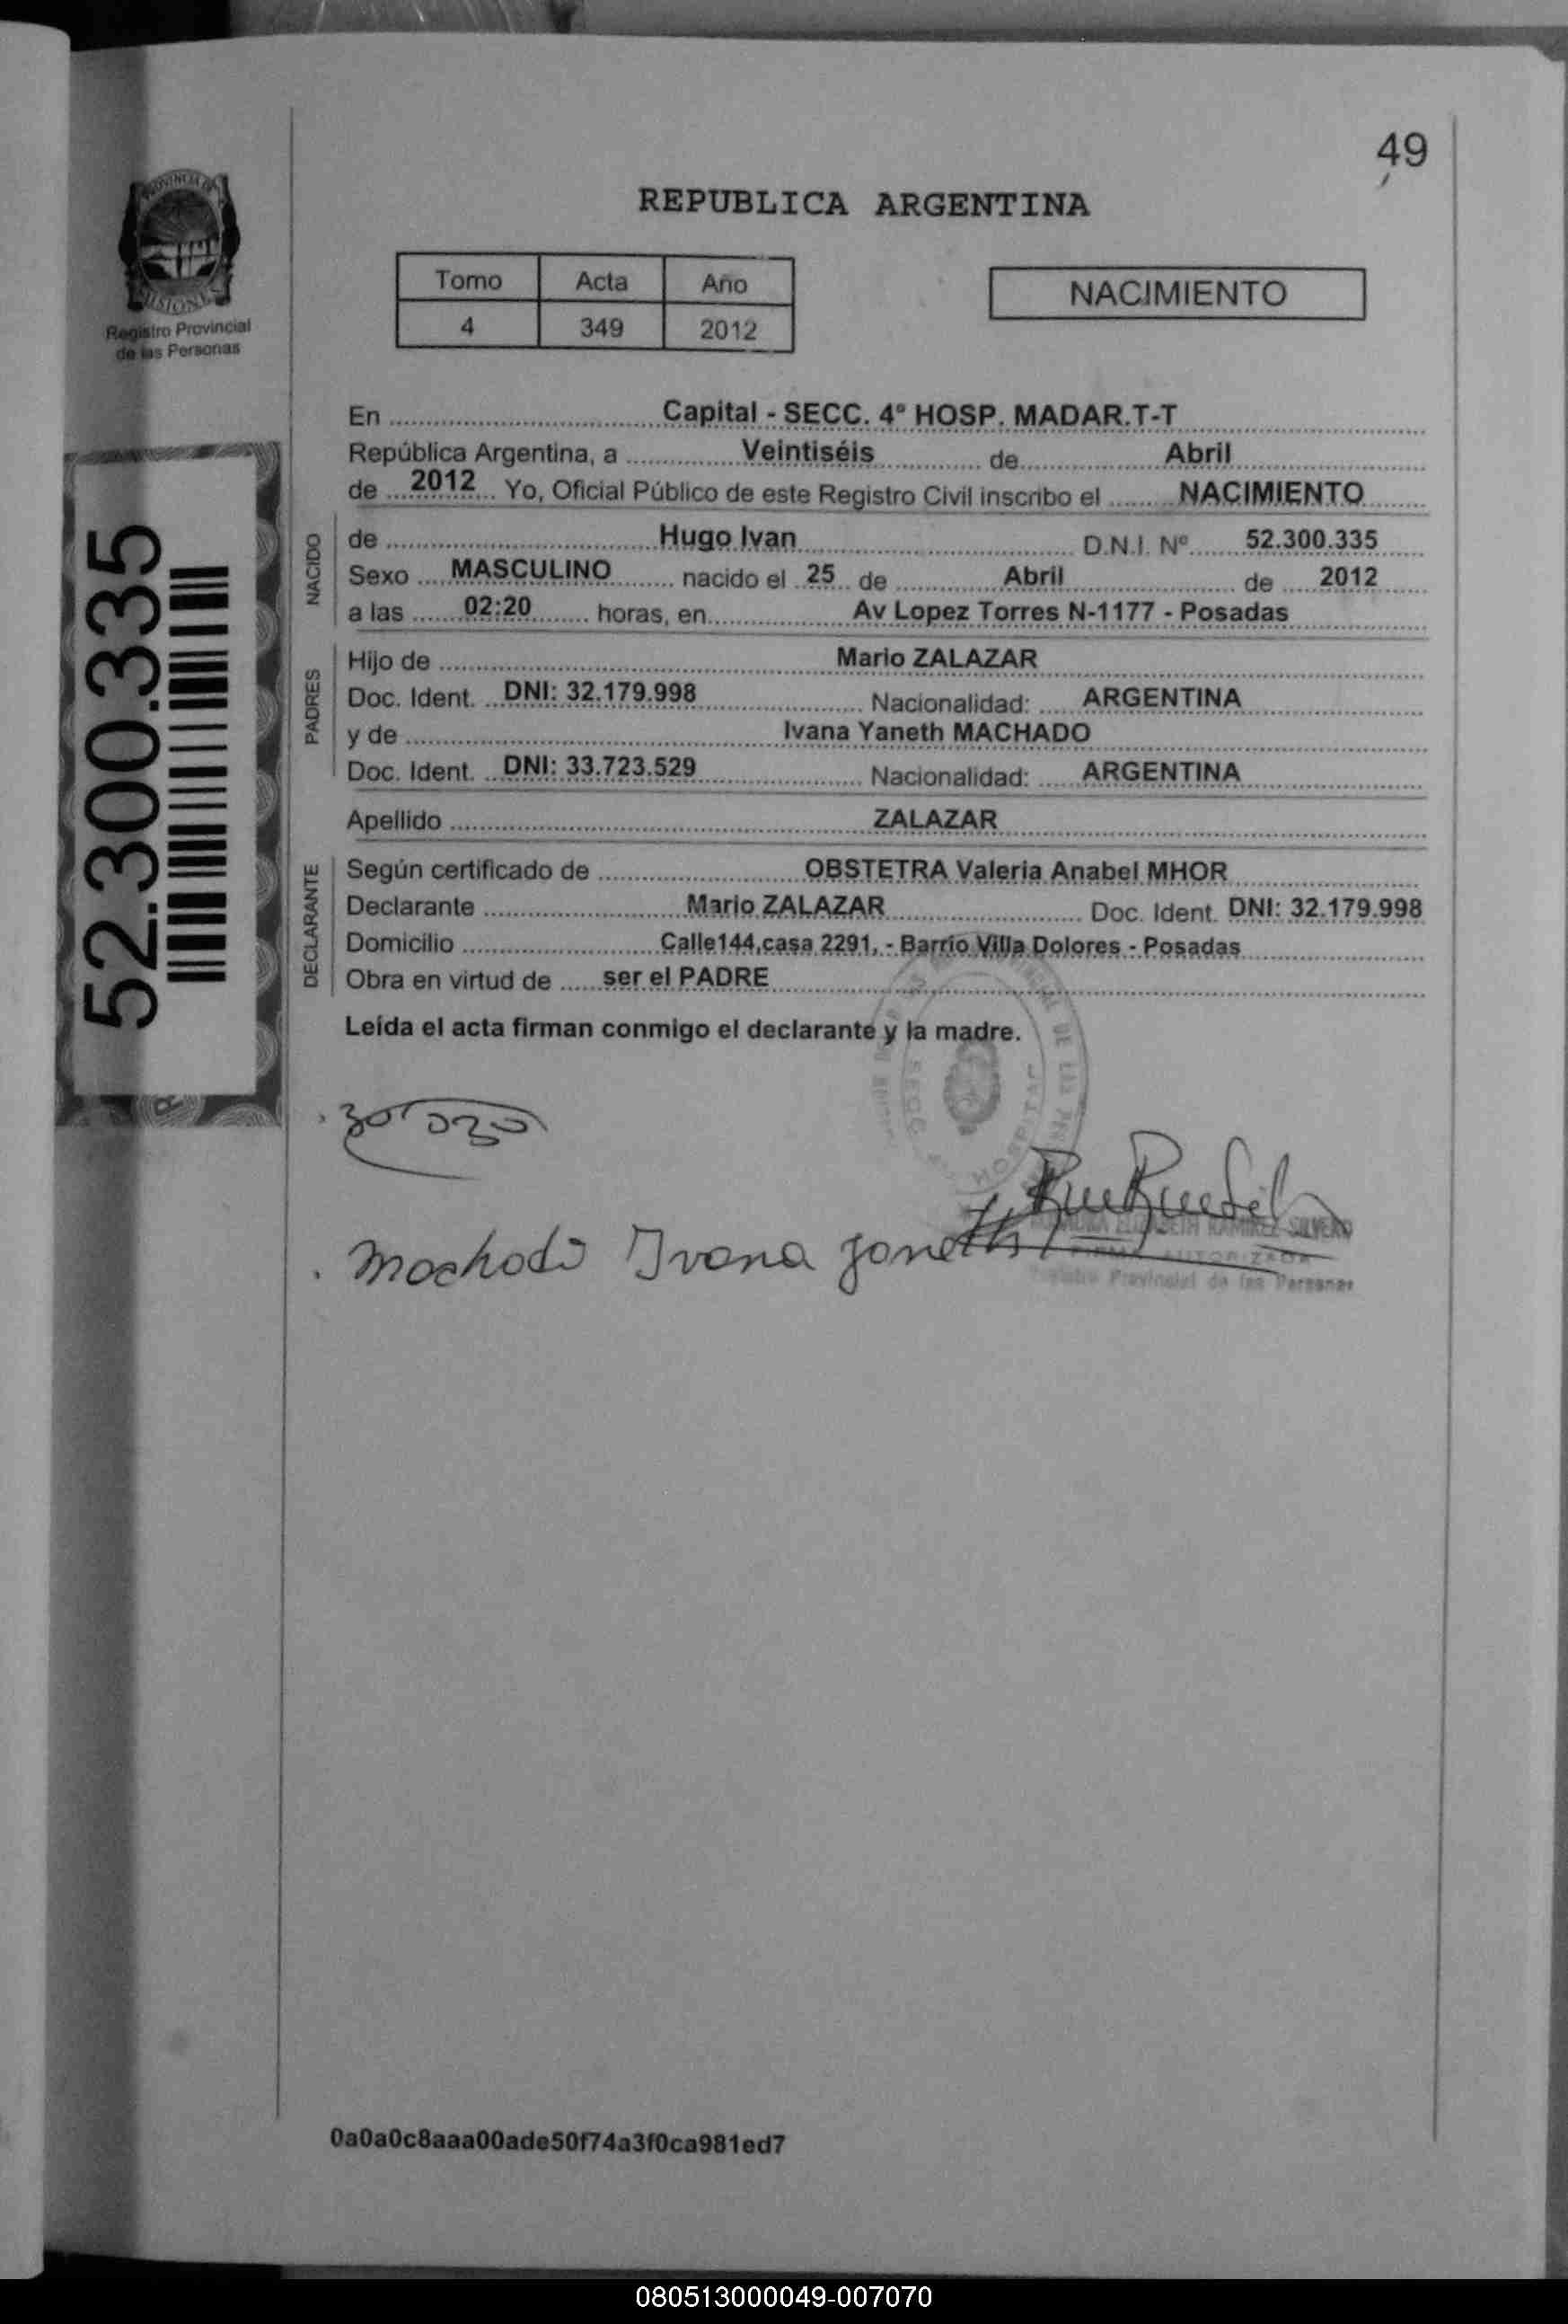 49
PROVINCIA DE
MISIONES
Registro Provincial
de las Personas
REPUBLICA ARGENTINA
Tomo Acta Año
4 349 2012
NACIMIENTO
En Capital - SECC. 4° HOSP. MADAR.T-T
República Argentina, a Veintiséis de Abril
de 2012 Yo, Oficial Público de este Registro Civil inscribo el NACIMIENTO
NACIDO
de Hugo Ivan D.N.I. Nº 52.300.335
Sexo MASCULINO nacido el 25 de Abril de 2012
a las 02:20 horas, en Av Lopez Torres N-1177 - Posadas
PADRES
Hijo de Mario ZALAZAR
Doc. Ident. DNI: 32.179.998 Nacionalidad: ARGENTINA
y de Ivana Yaneth MACHADO
Doc. Ident. DNI: 33.723.529 Nacionalidad: ARGENTINA
Apellido ZALAZAR
DECLARANTE
Según certificado de OBSTETRA Valeria Anabel MHOR
Declarante Mario ZALAZAR Doc. Ident. DNI: 32.179.998
Domicilio Calle144,casa 2291, - Barrio Villa Dolores - Posadas
Obra en virtud de ser el PADRE
Leída el acta firman conmigo el declarante y la madre.
52.300.335
Machado Ivana Janeth
ELIZABETH RAMIREZ SILVERO
FIRMA AUTORIZADA
Registro Provincial de las Personas
0a0a0c8aaa00ade50f74a3f0ca981ed7
080513000049-007070